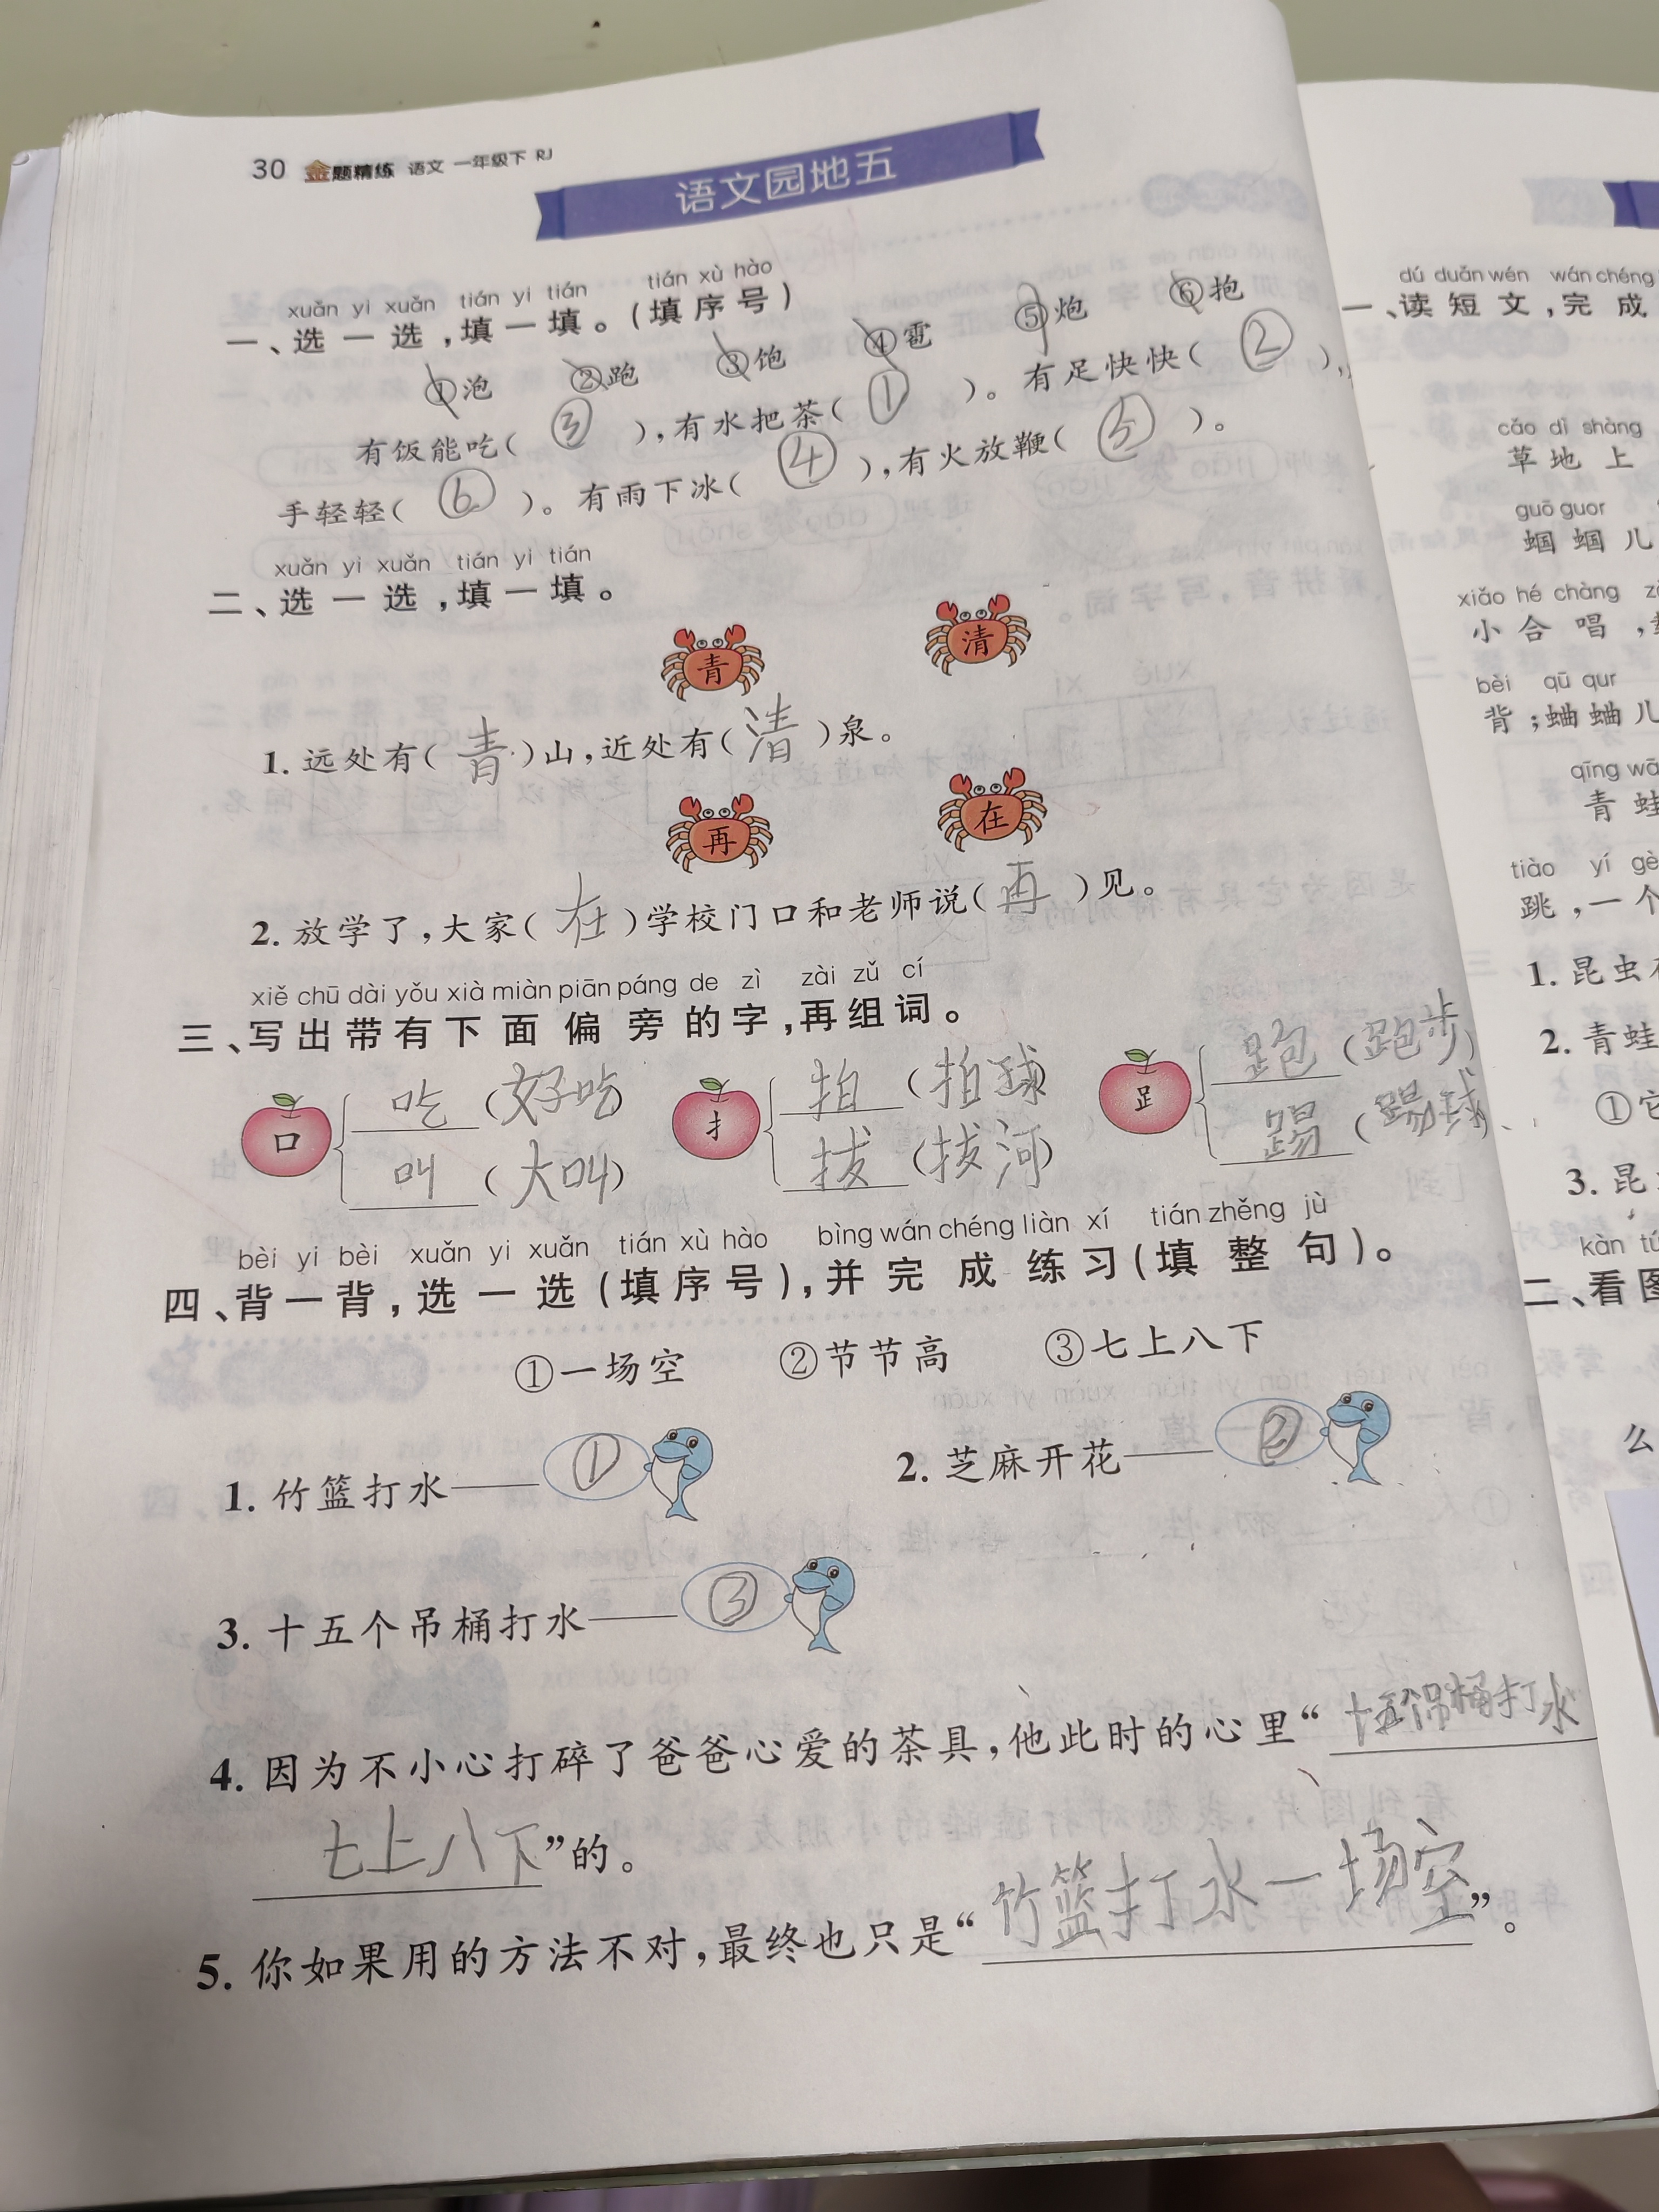 30 金题精练 语文 一年级下 RJ
语文园地五
xuǎn yi xuǎn tián yi tián tián xù hào
一、选一选,填一填。(填序号)
①泡 ②跑 ③饱 ④雹 ⑤炮 ⑥抱
有饭能吃( ③ ),有水把茶( ① )。有足快快( ② ),
手轻轻( ⑥ )。有雨下冰( ④ ),有火放鞭( ⑤ )。
xuǎn yi xuǎn tián yi tián
二、选一选,填一填。
青 清
1. 远处有( 青 )山,近处有( 清 )泉。
再 在
2. 放学了,大家( 在 )学校门口和老师说( 再 )见。
xiě chū dài yǒu xià miàn piān páng de zì zài zǔ cí
三、写出带有下面偏旁的字,再组词。
口 吃 (好吃) 扌 拍 (拍球) 𧾷 跑 (跑步)
叫 (大叫) 拔 (拔河) 踢 (踢球)
bèi yi bèi xuǎn yi xuǎn tián xù hào bìng wán chéng liàn xí tián zhěng jù
四、背一背,选一选(填序号),并完成练习(填整句)。
①一场空 ②节节高 ③七上八下
1. 竹篮打水——① 2. 芝麻开花——②
3. 十五个吊桶打水——③
4. 因为不小心打碎了爸爸心爱的茶具,他此时的心里“十五个吊桶打水
七上八下”的。
5. 你如果用的方法不对,最终也只是“竹篮打水一场空”。
dú duǎn wén wán chéng
一、读短文,完成
cǎo dì shàng
草地上
guō guor
蝈蝈儿
xiǎo hé chàng
小合唱,
bèi qū qur
背;蛐蛐儿
qīng wā
青蛙
tiào yí gè
跳,一个
1. 昆虫
2. 青蛙
①它
3. 昆
kàn tú
二、看图
么